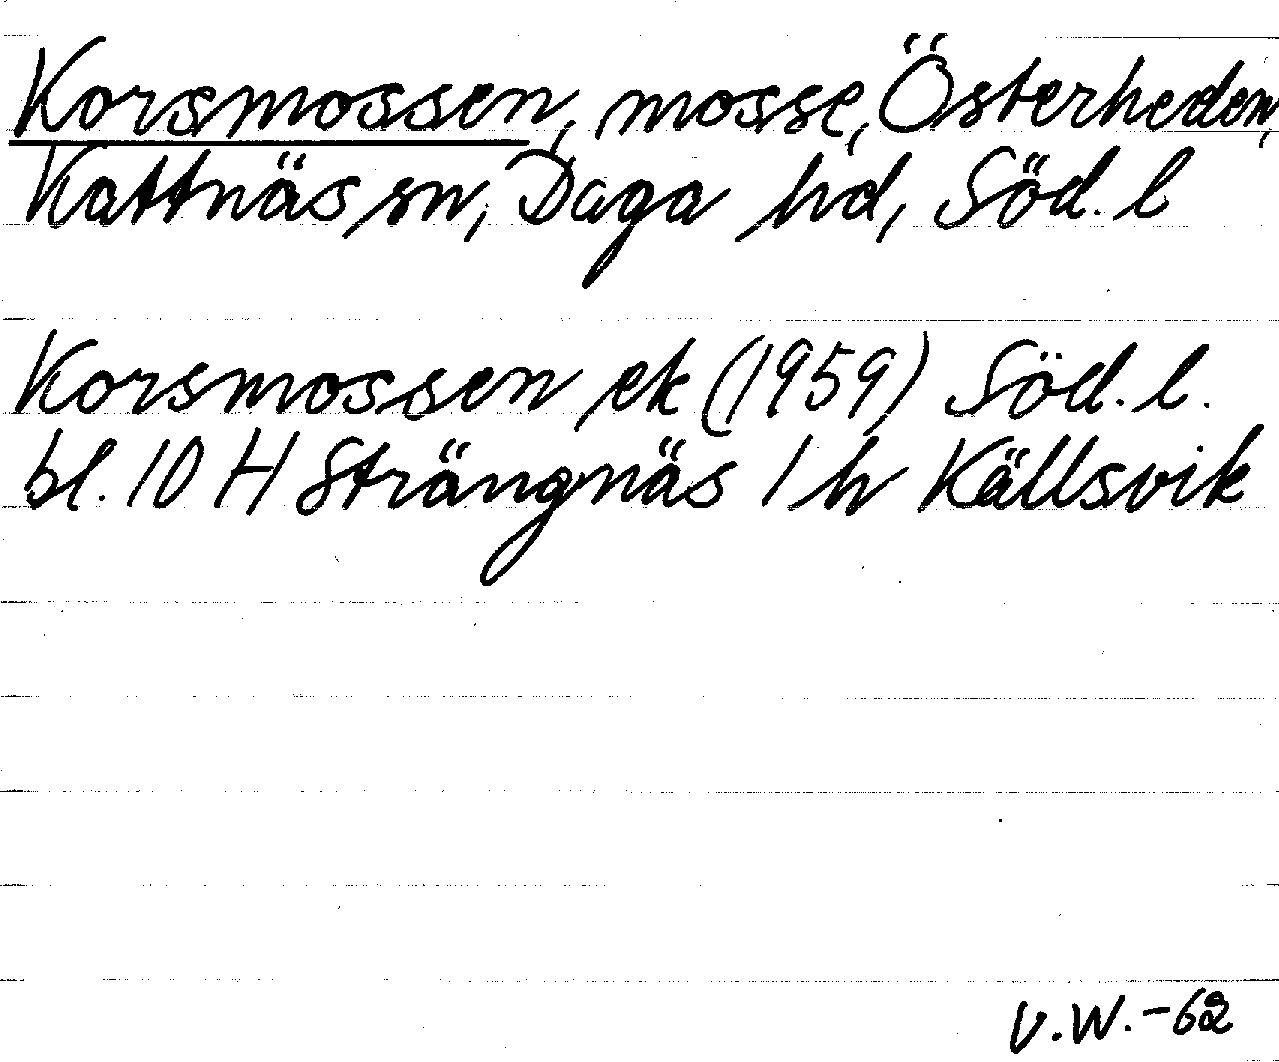 Korsmossen, mosse, Österheden,
Kattnäs sn, Daga hd, Söd. l
Korsmossen ek (1959) Söd. l.
bl. 10 H Strängnäs 1 h Källsvik
V.W.-62